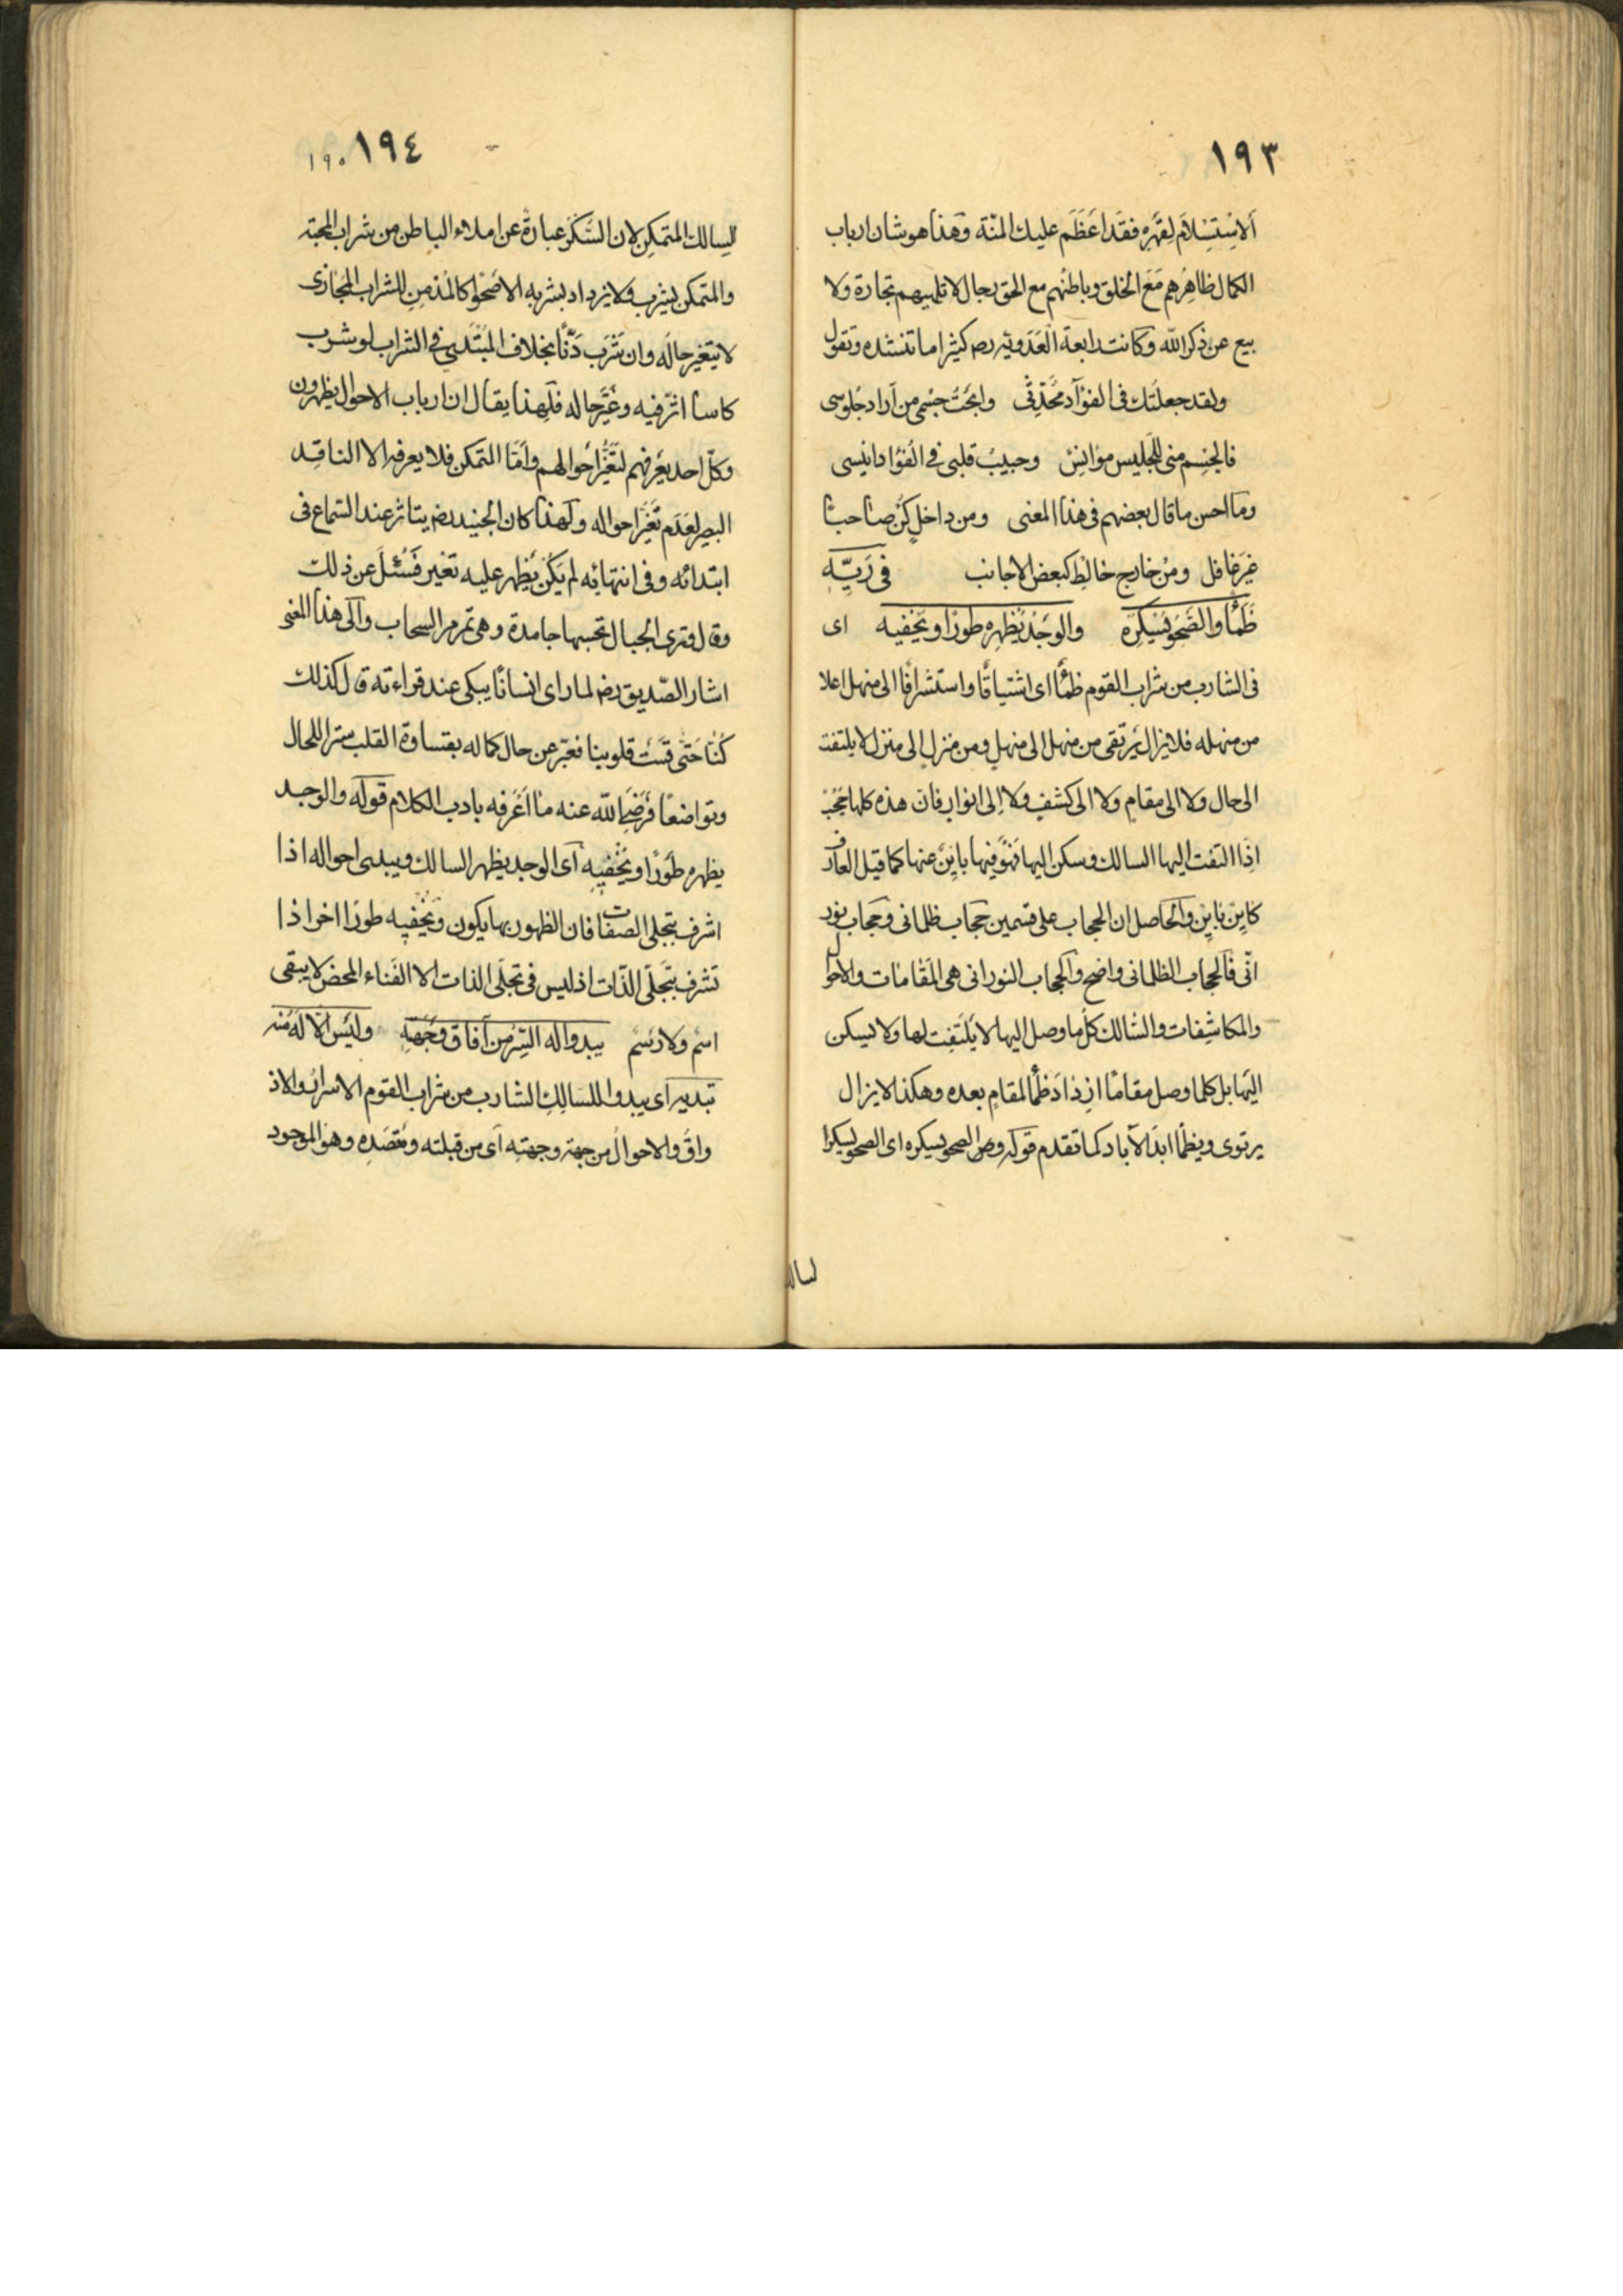 ١٩٣
الاستسلام لقهره فقد اعظم عليك المنة وهذا هو شان ارباب
الكمال ظاهرهم مع الخلق وباطنهم مع الحق رجال لا تلهيهم تجارة ولا
بيع عن ذكر الله وكانت رابعة العدويه رضه كثيرا ما تنشده وتقول
ولقد جعلتك فى الفؤآد محدّثى وابحت جسمى من آراد جلوسى
فالجسم منى للجليس موانس وحبيب قلبى فى الفؤاد انيسى
وما احسن ما قال بعضهم فى هذا المعنى ومن داخل كن صاحبا
غير غافل ومن خارج خالط كبعض الاجانب فى ريّه
ظمأ والصحو يسكره والوجد يظهره طورًا ويخفيه اى
فى الشارب من شراب القوم ظمأ اى اشتياقًا واستشرافًا الى منهل اعلا
من منهله فلا يزال يرتقى من منهل الى منهل ومن منزل الى منزل لا يلتفت
الى حال ولا الى مقام ولا الى كشف ولا الى انوار فان هذه كلها حجب
اذا التفت اليها السالك وسكن اليها فهو فيها باين عنها كما قيل العارف
كاين باين والحاصل ان الحجاب على قسمين حجاب ظلمانى وحجاب نور
انّى فالحجاب الظلمانى واضح والحجاب النورانى هى المقامات والاحوال
والمكاشفات والسالك كل ما وصل اليها لا يلتفت لها ولا يسكن
اليها بل كلما وصل مقامًا ازداد ظمأ لمقام بعده وهكذا لا يزال
يرتوى ويظمأ ابد الآباد كما تقدم قوله والصحو يسكره اى الصحو يسكرا
لسالك
١٩٤ ١٩٥
للسالك المتمكن لان السكر عبارة عن املاء الباطن من شراب المحبة
والمتمكن يشرب ولا يزداد بشربه الا صحوا كالمدمن للشراب المجازى
لا يتغير حاله وان شرب دنّا بخلاف المبتدى فى الشراب لو شرب
كاسا اثر فيه وغيّر حاله فلهذا يقال ان ارباب الاحوال يظهرون
وكل احد يعرفهم لتغير احوالهم وامّا المتمكن فلا يعرفه الا الناقد
البصير لعدم تغير احواله ولهذا كان الجنيد رضه يتاثر عند السماع فى
ابتدائه وفى انتهائه لم يكن يظهر عليه تغير فسئل عن ذلك
وقال وترى الجبال تحسبها جامدة وهى تمر مر السحاب والى هذا المعنى
اشار الصّديق رضه لما راى انسانًا يبكى عند قراءته قال كذلك
كنّا حتى قست قلوبنا فعبّر عن حال كماله بقساوة القلب سترا للحال
وتواضعًا فرضى الله عنه ما اعرفه بادب الكلام قوله والوجد
يظهره طورًا ويخفيه اى الوجد يظهر السالك ويبدى احواله اذا
اشرف بتجلى الصفات فان الظهور بها يكون ويخفيه طورًا اخر اذا
تشرف بتجلّى الذّات اذ ليس فى تجلّى الذات الا الفناء المحض لا يبقى
اسم ولا رسم يبدو له السّر من آفاق وجهته وليس الّا له منه
تبديه اى يبدو للسالك الشارب من شراب القوم الاسرار والاذ
واق والاحوال من جهة وجهته اى من قبلته ومقصده وهو الموجود